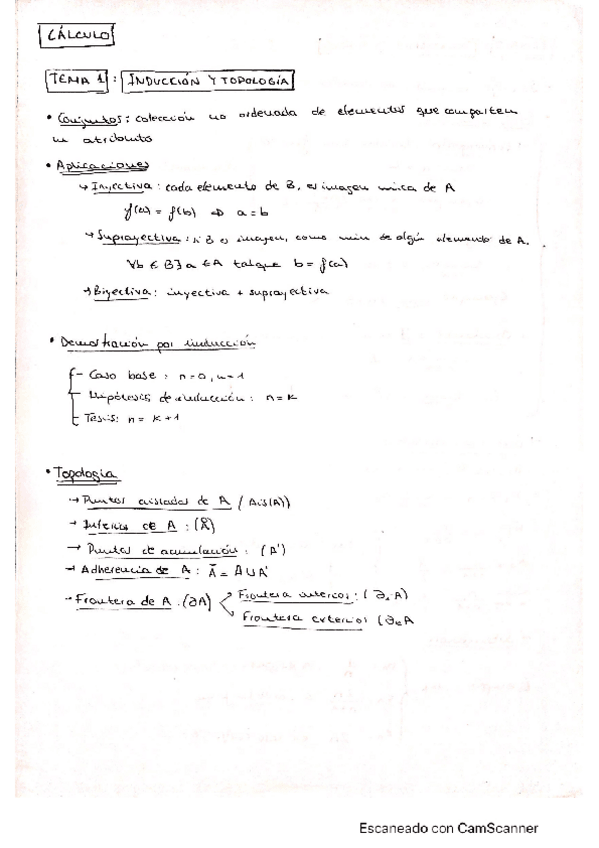 CÁLCULO
TEMA 1: INDUCCIÓN Y TOPOLOGÍA
• Conjuntos: colección no ordenada de elementos que comparten
un atributo
• Aplicaciones
↳ Inyectiva: cada elemento de B, es imagen única de A
f(a) = f(b) ⇒ a = b
↳ Suprayectiva: B es imagen, como min de algún elemento de A.
∀b ∈ B ∃ a ∈ A tal que b = f(a)
→ Biyectiva: inyectiva + suprayectiva
• Demostración por inducción
- Caso base: n=0, n=1
- Hipótesis de inducción: n=k
- Tesis: n = k+1
• Topología
→ Puntos aislados de A (Ais(A))
→ Interior de A: (Å)
→ Puntos de acumulación: (A')
→ Adherencia de A: Ā = A∪A'
→ Frontera de A: (∂A) < Frontera interior: (∂ A)
Frontera exterior (∂eA
Escaneado con CamScanner